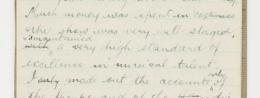 Much money was spent in costumes
the show was very well staged,
maintained
a very high standard of
excellence in musical talent.
only
I only made out the accounts